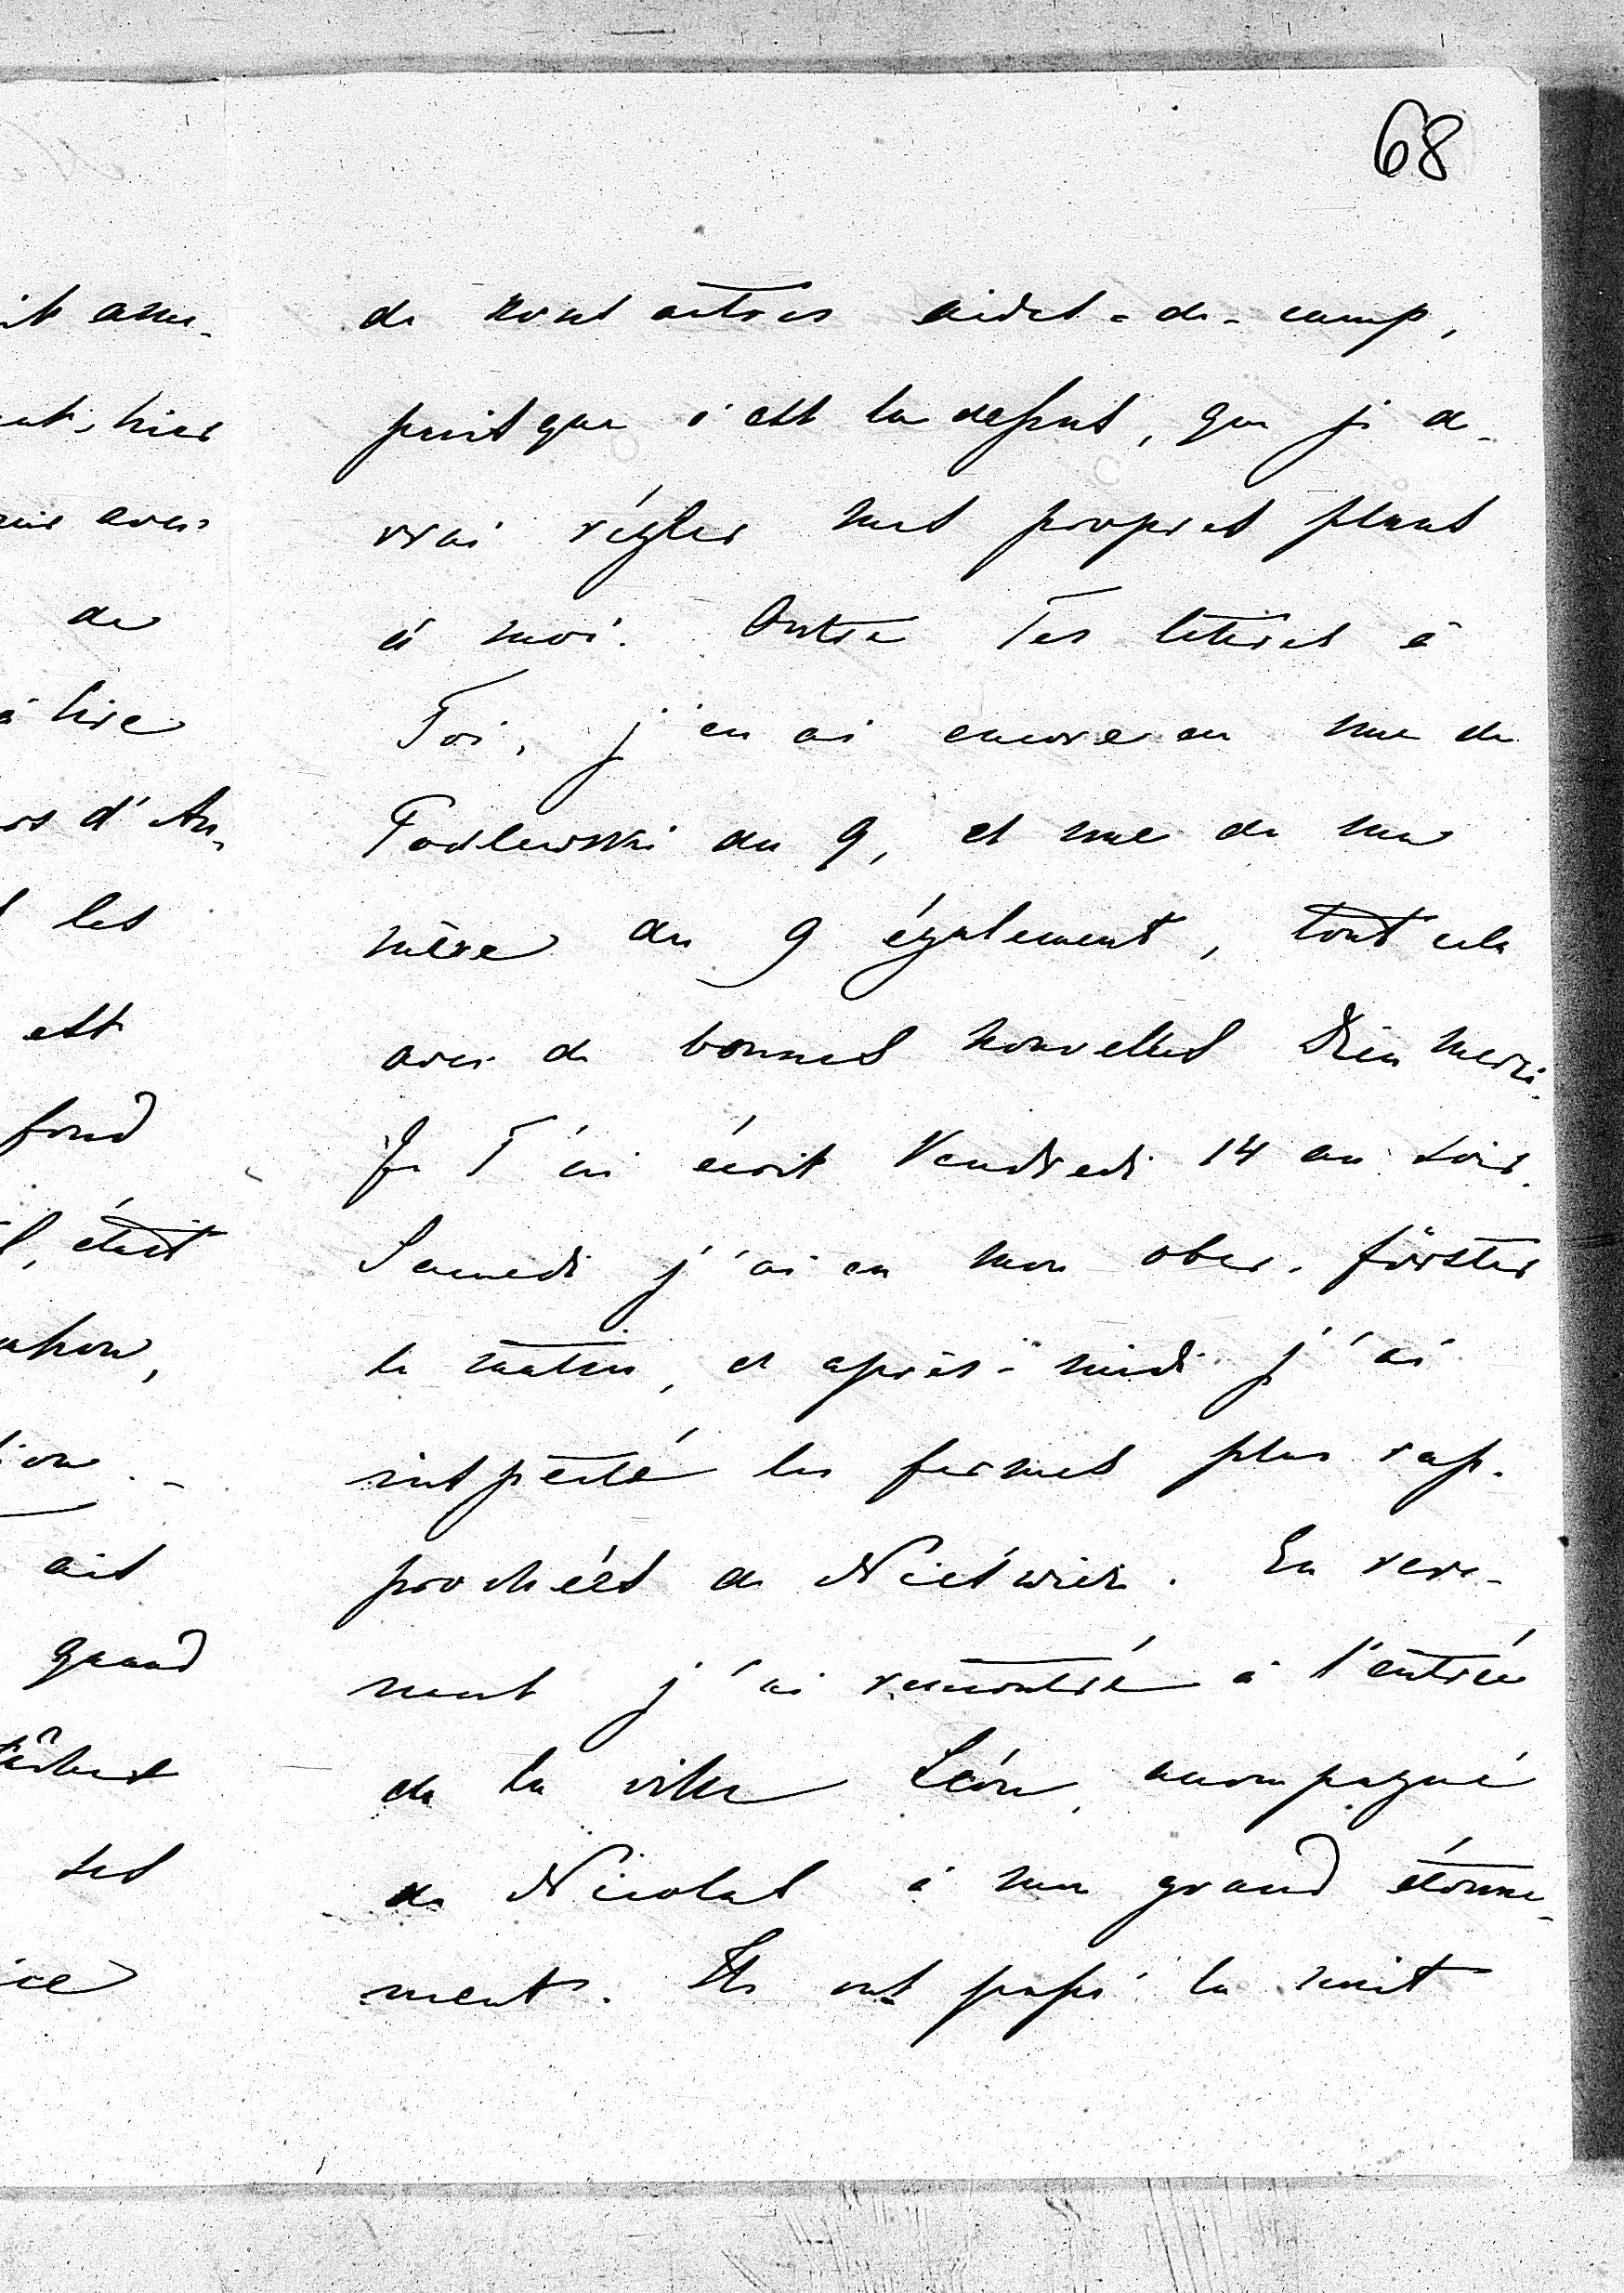 68
de nous autres aides-de-camp,
puisque c'est la dessus, que je de-
vrai régler mes propres plans
à moi. Outre Tes lettres à
Toi, j'en ai encore eu une de
Podlewski du 9, et une de ma
mère du 9 également, tout cela
avec de bonnes nouvelles Dieu merci.
Je T'ai écrit Vendredi 14 au soir.
Samedi j'ai eu mon ober-förster
le matin, et après-midi j'ai
inspecté les fermes plus rap-
prochées de Nieświeź. En reve-
nant j'ai rencontré à l'entrée
de la ville Léon, accompagné
de Nicolas à mon grand étonne-
ment. Ils ont passé la nuit
hier
avec
de
à lire
d'An-
les
est
fond
était
ait
quand
ses